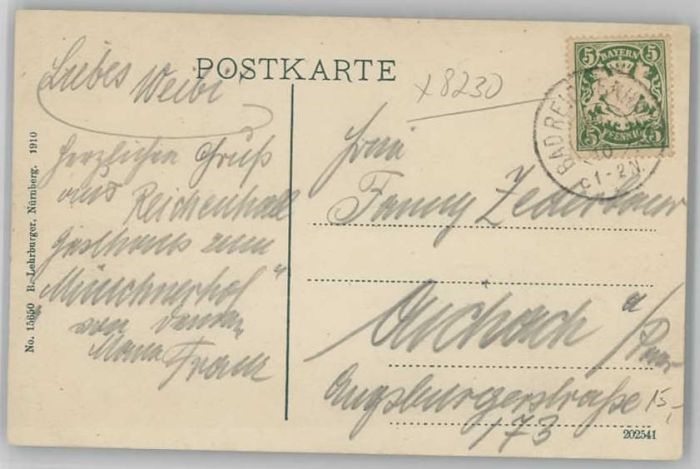 POSTKARTE
Liebes Weibi
Herzlichen Gruß
aus Reichenhall
Gasthaus zum
Münchnerhof"
von Deinem
Mann Franz
x8230
Frau
Fanny Zederbauer
Aichach a/
Augsburgerstraße
173
15,-
BAYERN
5 5
5 PFENNIG 5
BAD REICHENHALL
1-2N
No. 15650 B. Lehrburger, Nürnberg. 1910
202541